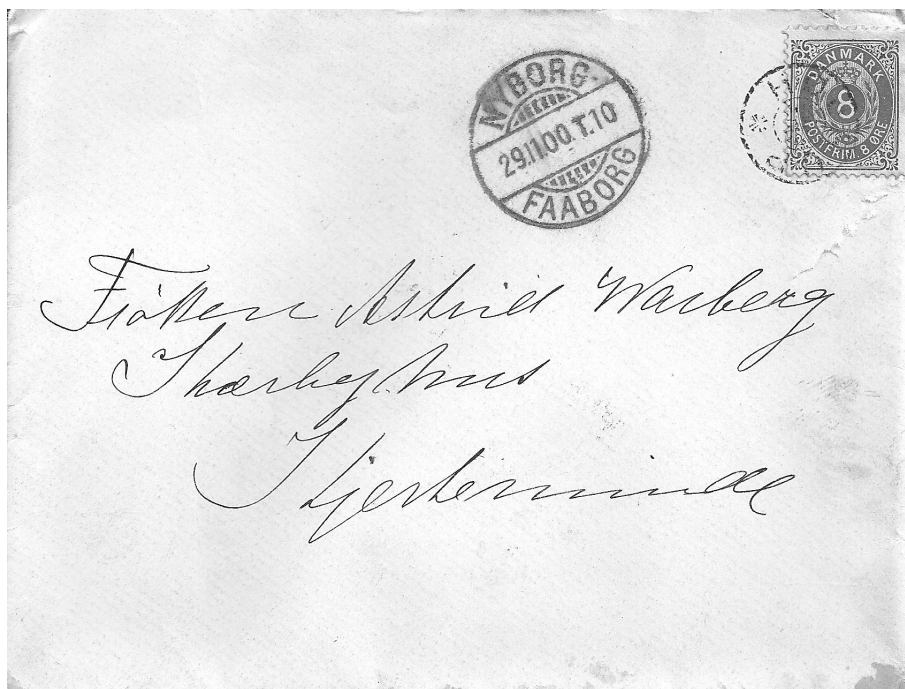 NYBORG-
29.11.00. T.10
FAABORG
DANMARK
8
POSTFRIM. 8 ØRE
Frøken Astrid Warberg
Kærbyhus
Kjerteminde